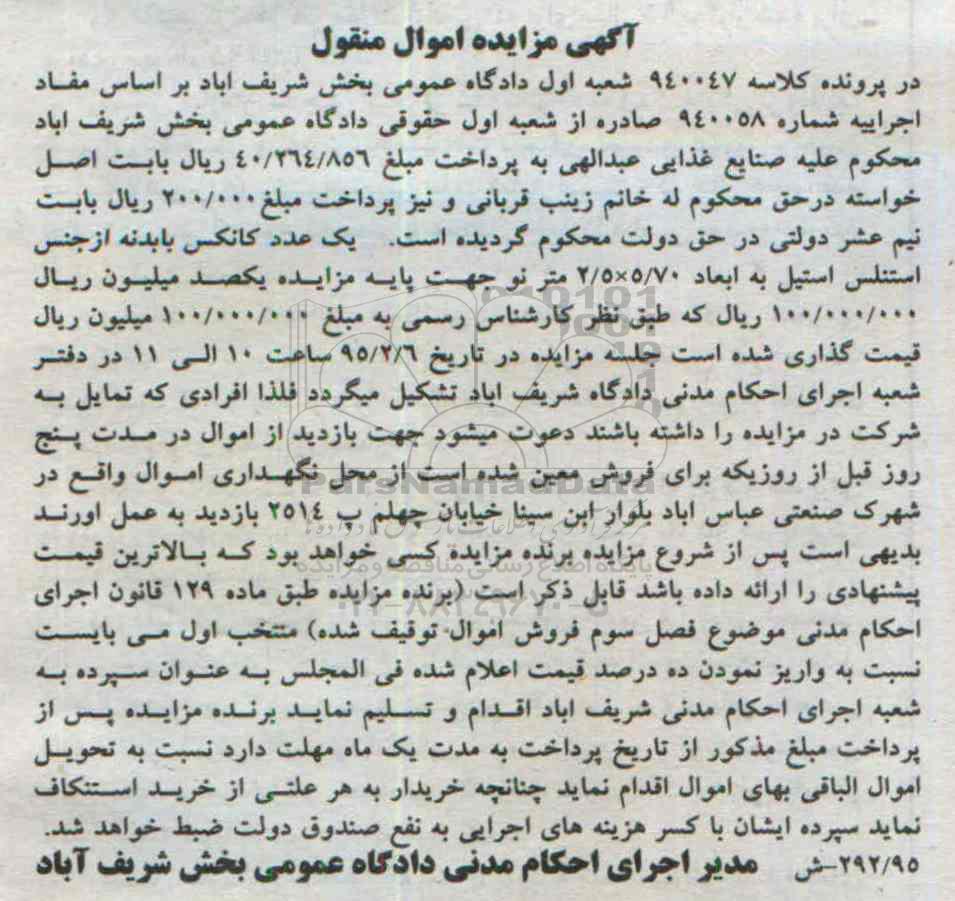 آگهی مزایده اموال منقول
در پرونده کلاسه ۹۴۰۰۴۷ شعبه اول دادگاه عمومی بخش شریف اباد بر اساس مفاد
اجراییه شماره ۹۴۰۰۵۸ صادره از شعبه اول حقوقی دادگاه عمومی بخش شریف اباد
محکوم علیه صنایع غذایی عبدالهی به پرداخت مبلغ ۴۰/۲۶۴/۸۵۶ ریال بابت اصل
خواسته درحق محکوم له خانم زینب قربانی و نیز پرداخت مبلغ ۲۰۰/۰۰۰ ریال بابت
نیم عشر دولتی در حق دولت محکوم گردیده است. یک عدد کانکس بابدنه ازجنس
استنلس استیل به ابعاد ۲/۵×۵/۷۰ متر نو جهت پایه مزایده یکصد میلیون ریال
۱۰۰/۰۰۰/۰۰۰ ریال که طبق نظر کارشناس رسمی به مبلغ ۱۰۰/۰۰۰/۰۰۰ میلیون ریال
قیمت گذاری شده است جلسه مزایده در تاریخ ۹۵/۲/۶ ساعت ۱۰ الی ۱۱ در دفتر
شعبه اجرای احکام مدنی دادگاه شریف اباد تشکیل میگردد فلذا افرادی که تمایل به
شرکت در مزایده را داشته باشند دعوت میشود جهت بازدید از اموال در مدت پنج
روز قبل از روزیکه برای فروش معین شده است از محل نگهداری اموال واقع در
ParsNamadData
شهرک صنعتی عباس اباد بلوار ابن سینا خیابان چهلم پ ۲۵۱۴ بازدید به عمل اورند
بدیهی است پس از شروع مزایده برنده مزایده کسی خواهد بود که بالاترین قیمت
پایگاه اطلاع رسانی مناقصه و مزایده
پیشنهادی را ارائه داده باشد قابل ذکر است (برنده مزایده طبق ماده ۱۲۹ قانون اجرای
احکام مدنی موضوع فصل سوم فروش اموال توقیف شده) منتخب اول می بایست
نسبت به واریز نمودن ده درصد قیمت اعلام شده فی المجلس به عنوان سپرده به
شعبه اجرای احکام مدنی شریف اباد اقدام و تسلیم نماید برنده مزایده پس از
پرداخت مبلغ مذکور از تاریخ پرداخت به مدت یک ماه مهلت دارد نسبت به تحویل
اموال الباقی بهای اموال اقدام نماید چنانچه خریدار به هر علتی از خرید استنکاف
نماید سپرده ایشان با کسر هزینه های اجرایی به نفع صندوق دولت ضبط خواهد شد.
۲۹۲/۹۵-ش مدیر اجرای احکام مدنی دادگاه عمومی بخش شریف آباد